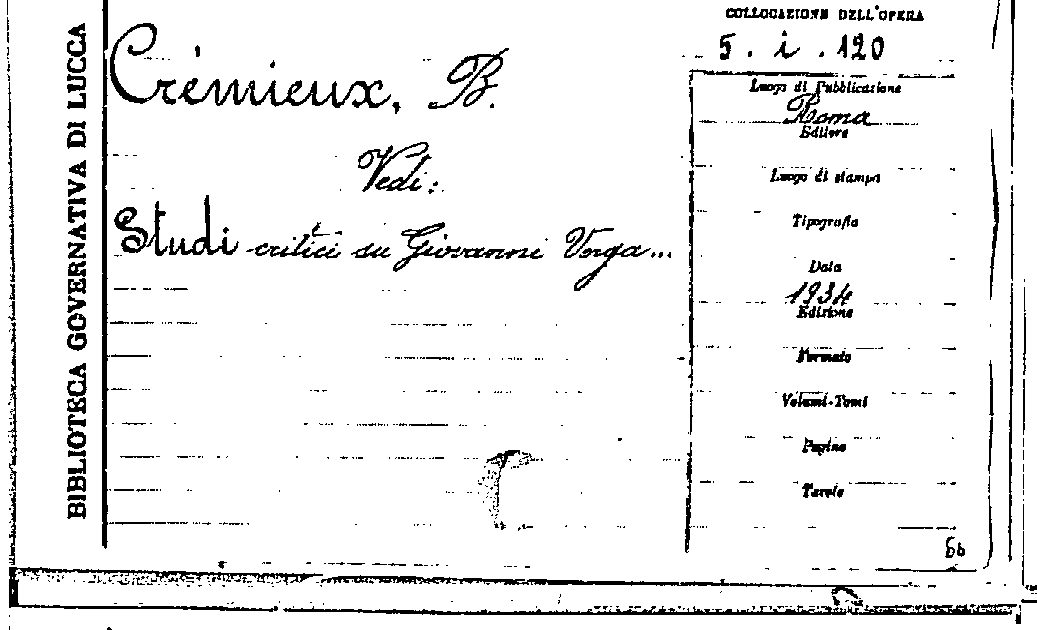 BIBLIOTECA GOVERNATIVA DI LUCCA
Crémieux, B.
Vedi:
Studi critici su Giovanni Verga...
COLLOCAZIONE DELL'OPERA
5. i. 120
Luogo di Pubblicazione
Roma
Editore
Luogo di stampa
Tipografia
Data
1934
Edizione
Formato
Volumi-Tomi
Pagine
Tavole
6b